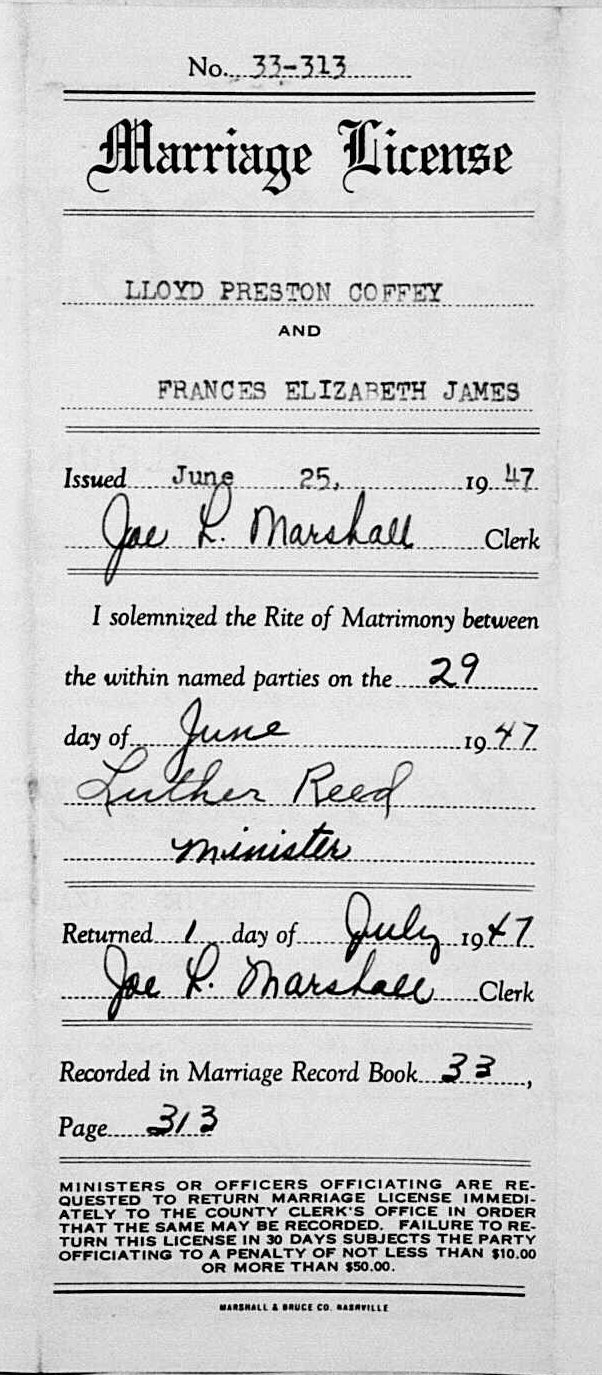 No. 33-313
Marriage License
LLOYD PRESTON COFFEY
AND
FRANCES ELIZABETH JAMES
Issued June 25, 1947
Joe L. Marshall Clerk
I solemnized the Rite of Matrimony between
the within named parties on the 29
day of June 1947
Luther Reed
minister
Returned 1 day of July 1947
Joe L. Marshall Clerk
Recorded in Marriage Record Book 33,
Page 313
MINISTERS OR OFFICERS OFFICIATING ARE RE-
QUESTED TO RETURN MARRIAGE LICENSE IMMEDI-
ATELY TO THE COUNTY CLERK'S OFFICE IN ORDER
THAT THE SAME MAY BE RECORDED. FAILURE TO RE-
TURN THIS LICENSE IN 30 DAYS SUBJECTS THE PARTY
OFFICIATING TO A PENALTY OF NOT LESS THAN $10.00
OR MORE THAN $50.00.
MARSHALL & BRUCE CO. NASHVILLE